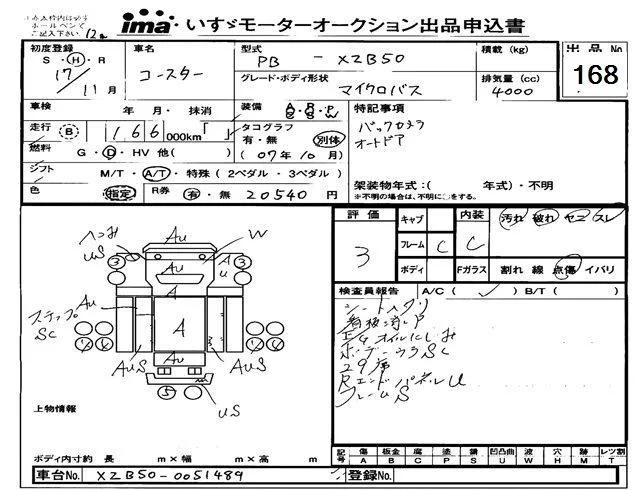 ima いすゞモーターオークション出品申込書
初度登録 車名 型式 積載 (kg) 出品No
S・H・R コースター PB - XZB50 168
17/11月 グレード・ボディ形状 マイクロバス 排気量 (cc) 4000
車検 年 月・ 抹消 装備 特記事項
走行 B 166 000km「 」 タコグラフ 有・無 別体 バックカメラ
燃料 G・D・HV 他( ) (07年10月) オートドア
シフト M/T・A/T・特殊 (2ペダル・3ペダル) 架装物年式:( 年式)・不明
色 指定 R券 有・無 20540 円 ※不明の場合は、不明に○をする。
評価 キャブ 内装 汚れ 破れ ヤニ スレ
3 フレーム C C
ボディ Fガラス 割れ 線 点傷 イバリ
検査員報告 A/C ( ) B/T ( )
ヘコみ Au W
US 3 3 A U
Au A
ステップ SC Au A
シートヘタリ
看板消しP
E/gオイルにじみ
ボデーウラSC
29席
RエンドパネルU
フレームS
AUS AUS
5 US
上物情報
ボディ内寸約 長 m×幅 m×高 m
記号 傷 板金 腐 塗 錆 凹凸曲 波 穴 跡 レツ割
A B C P S U W H M T
車台No. XZB50-0051489 登録No.